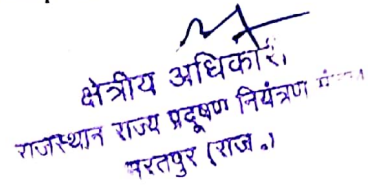 क्षेत्रीय अधिकारी
राजस्थान राज्य प्रदूषण नियंत्रण
भरतपुर (राज.)